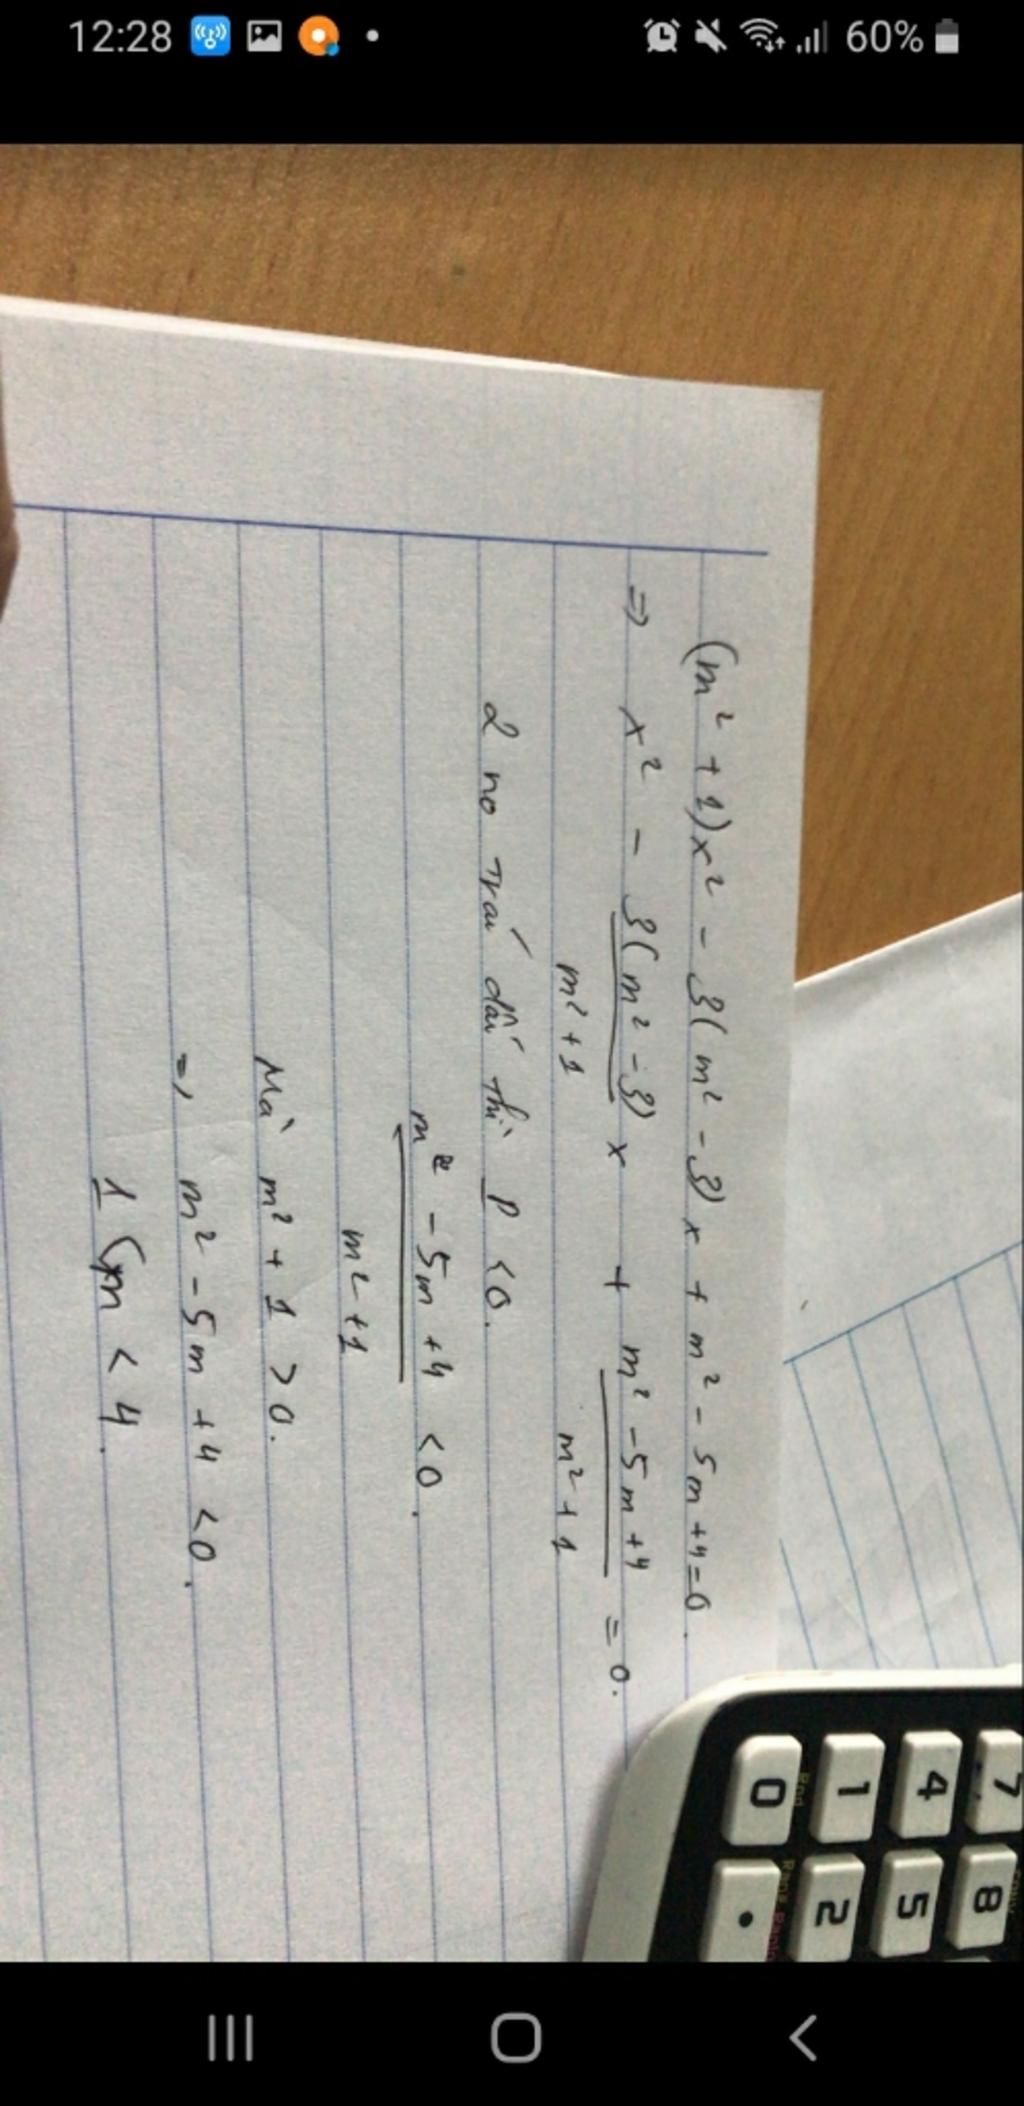 12:28 60%
(m² + 1)x² - 3(m² - 3)x + m² - 5m + 4 = 0.
=> x² - 3(m² - 3) x + m² - 5m + 4 = 0.
m² + 1 m² + 1
2 no trái dấu thì P < 0.
m² - 5m + 4 < 0.
m² + 1
Mà m² + 1 > 0.
=> m² - 5m + 4 < 0.
1 < m < 4.
7 8
4 5
1 2
0 .
Rnd